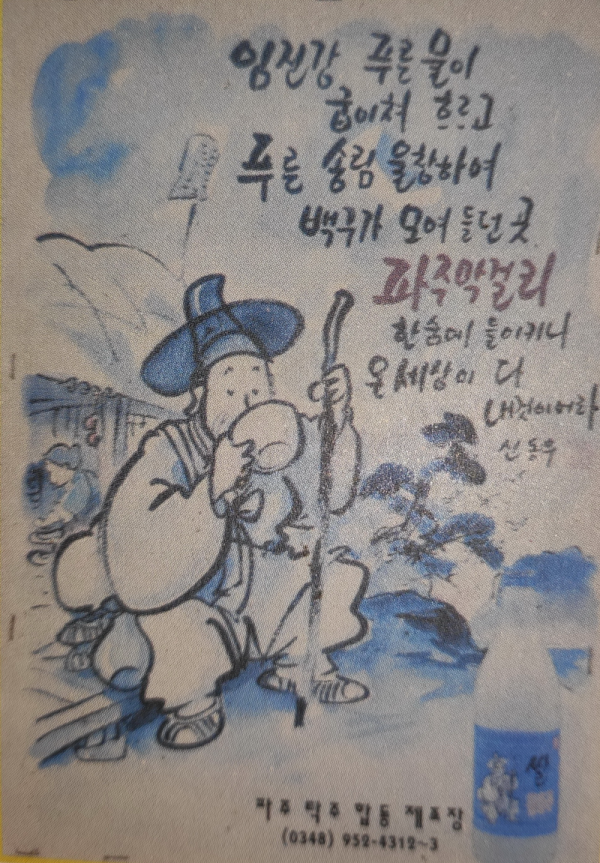 임진강 푸른 물이
굽이쳐 흐르고
푸른 송림 울창하여
백구가 모여 들던 곳
파주막걸리
한숨에 들이키니
온 세상이 다
내것이어라
신동우
쌀
파주 탁주 합동 제조장
(0348) 952-4312~3